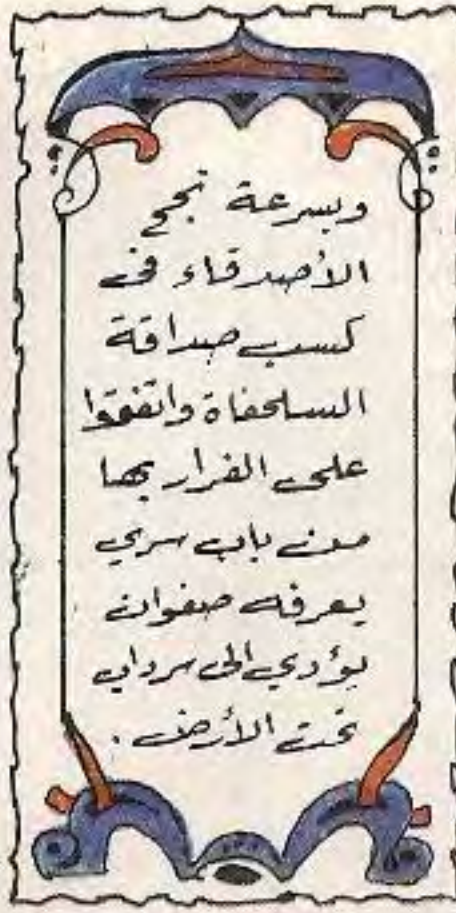 وبسرعة نجح
الأصدقاء في
كسب صداقة
السلحفاة واتفقوا
على الفرار بها
من باب سري
يعرفه صفوان
يؤدي الى سرداب
تحت الأرض .